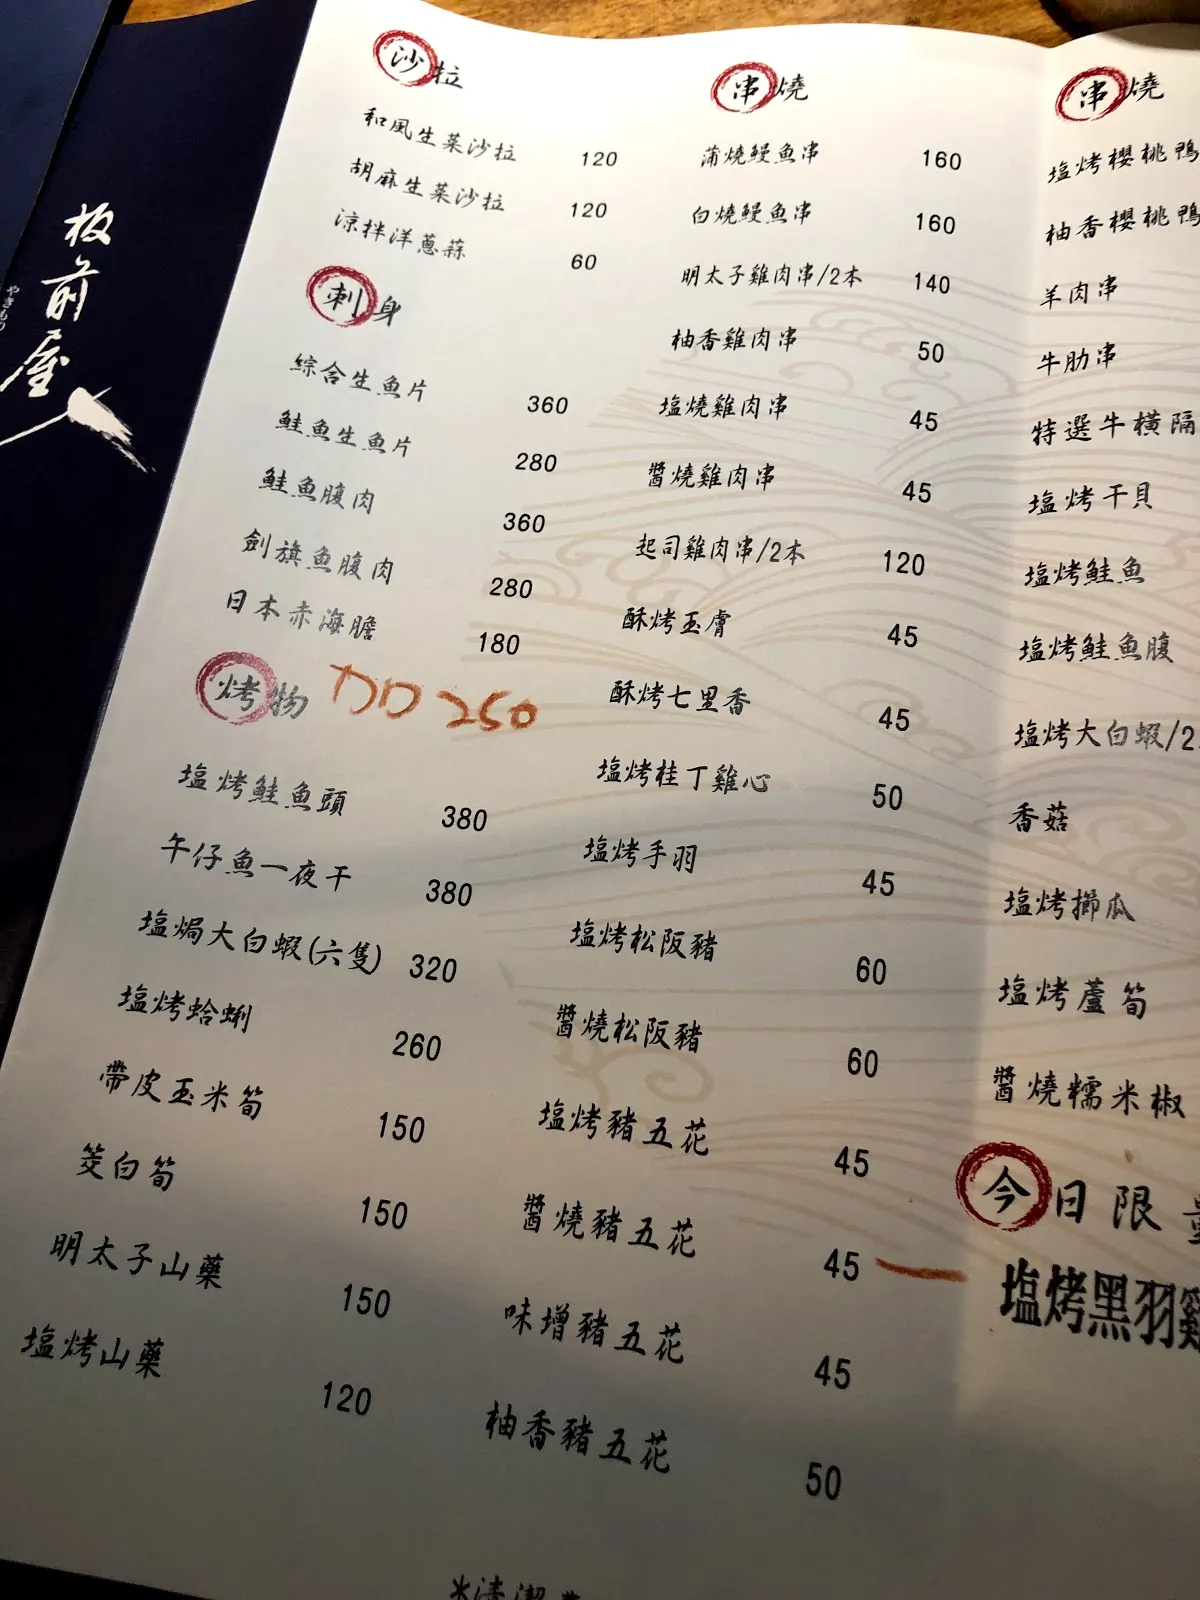 板前屋
やきもり
沙拉
和風生菜沙拉 120
胡麻生菜沙拉 120
涼拌洋蔥蒜 60
刺身
綜合生魚片 360
鮭魚生魚片 280
鮭魚腹肉 360
劍旗魚腹肉 280
日本赤海膽 180
烤物
250
塩烤鮭魚頭 380
午仔魚一夜干 380
塩焗大白蝦(六隻) 320
塩烤蛤蜊 260
帶皮玉米筍 150
筊白筍 150
明太子山藥 150
塩烤山藥 120
串燒
蒲燒鰻魚串 160
白燒鰻魚串 160
明太子雞肉串/2本 140
柚香雞肉串 50
塩燒雞肉串 45
醬燒雞肉串 45
起司雞肉串/2本 120
酥烤玉膚 45
酥烤七里香 45
塩烤桂丁雞心 50
塩烤手羽 45
塩烤松阪豬 60
醬燒松阪豬 60
塩烤豬五花 45
醬燒豬五花 45
味增豬五花 45
柚香豬五花 50
串燒
塩烤櫻桃鴨
柚香櫻桃鴨
羊肉串
牛肋串
特選牛橫隔
塩烤干貝
塩烤鮭魚
塩烤鮭魚腹
塩烤大白蝦/2
香菇
塩烤擳瓜
塩烤蘆筍
醬燒糯米椒
今日限量
塩烤黑羽雞